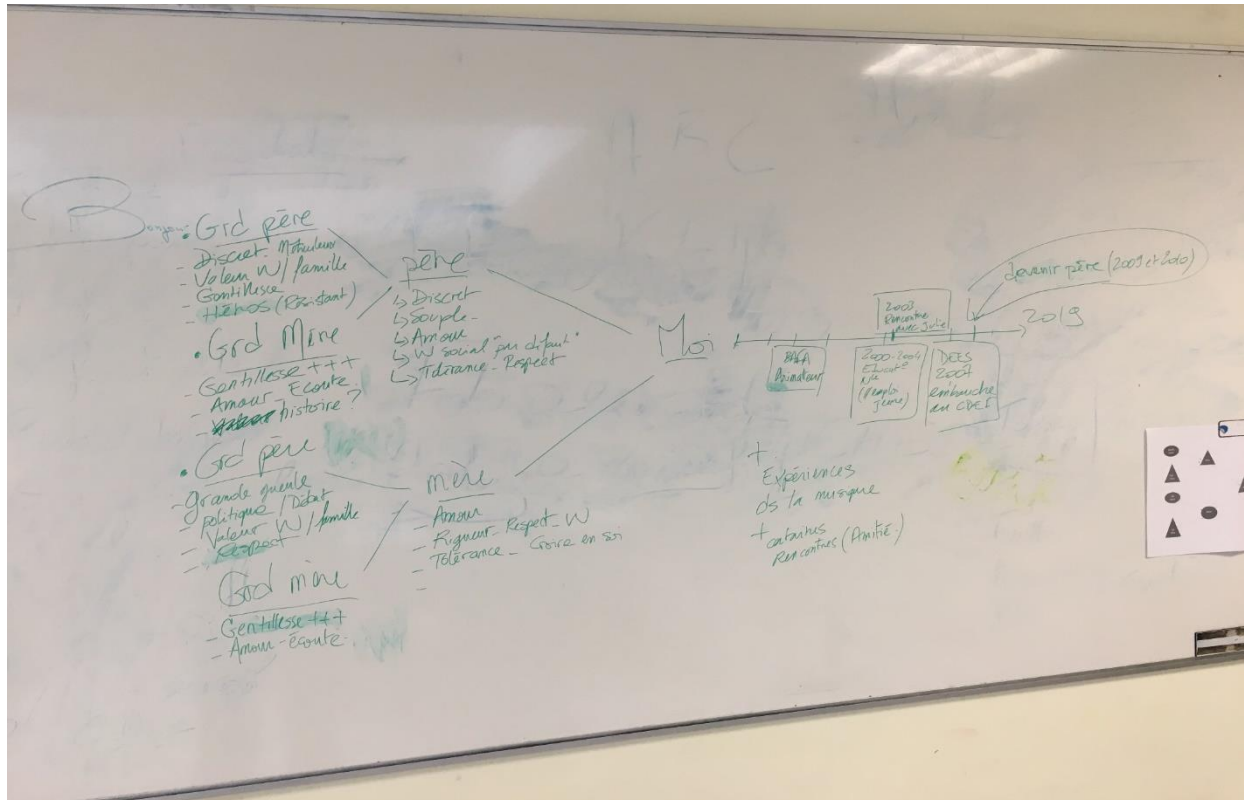 Bonjour
• Grd père
- Discret
- Valeur W / famille
- Gentillesse
- Héros (Résistant)
• Grd Mère
- Gentillesse +++
- Amour - Ecoute
- histoire ?
• Grd père
- grande gueule
- politique / Débat
- Valeur W / famille
- Respect
Grd mère
- Gentillesse +++
- Amour - écoute
père
↳ Discret
↳ Souple
↳ Amour
↳ W social "par défaut"
↳ Tolérance - Respect
mère
- Amour
- Rigueur - Respect - W
- Tolérance - Croire en soi
-
Moi
BAFA
Animateur
2003
Rencontre
avec Julie
2000-2004
(emploi
jeune)
DEES
2007
embauche
en
devenir père (2009 et 2010)
2019
+
Expériences
ds la musique
+ certaines
Rencontres (Amitié)